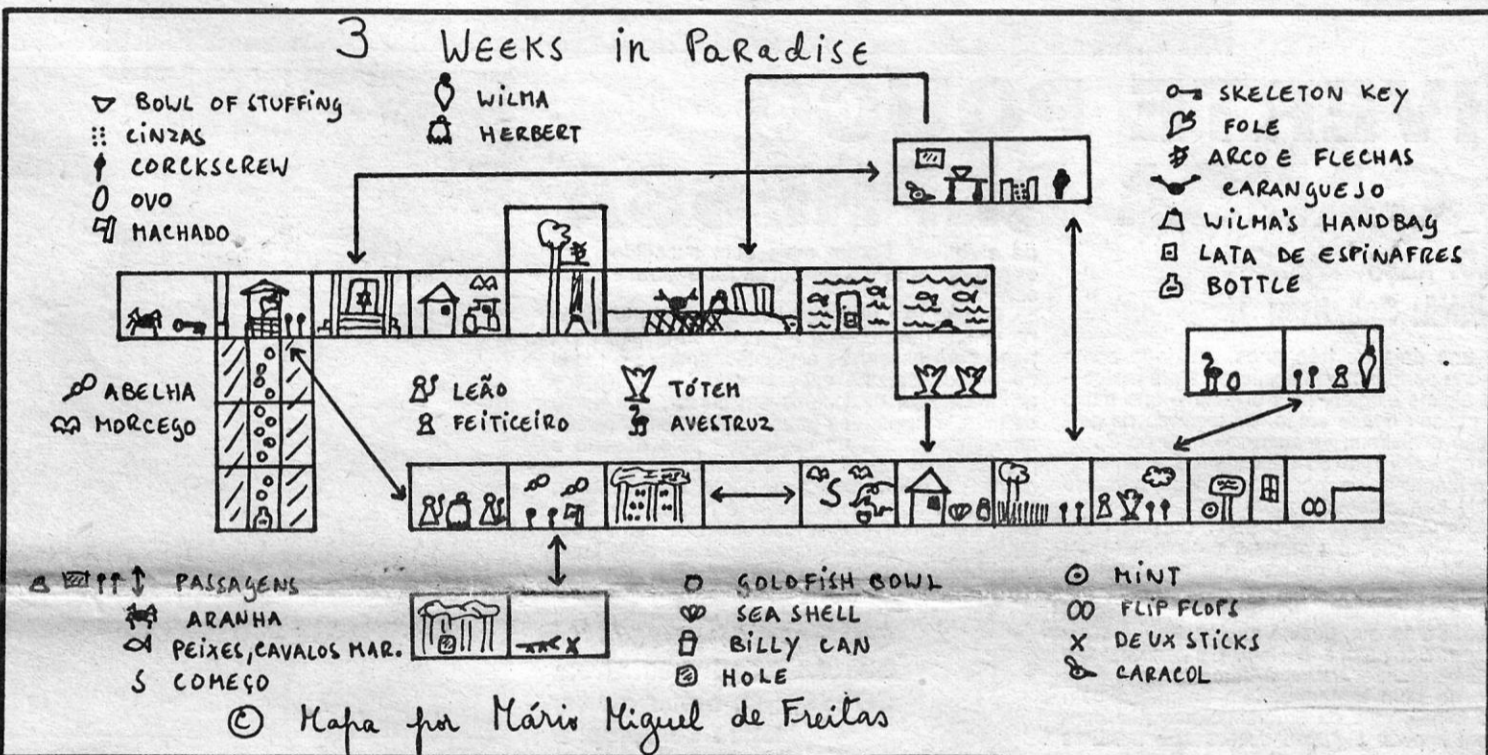 3 WEEKS in PARADISE
BOWL OF STUFFING
CINZAS
CORCKSCREW
OVO
MACHADO
WILMA
HERBERT
SKELETON KEY
FOLE
ARCO E FLECHAS
CARANGUEJO
WILMA'S HANDBAG
LATA DE ESPINAFRES
BOTTLE
ABELHA
MORCEGO
LEÃO
FEITICEIRO
TÓTEM
AVESTRUZ
S
PASSAGENS
ARANHA
PEIXES, CAVALOS MAR.
S COMEÇO
GOLDFISH BOWL
SEA SHELL
BILLY CAN
HOLE
MINT
FLIP FLOPS
DEUX STICKS
CARACOL
© Mapa por Mário Miguel de Freitas